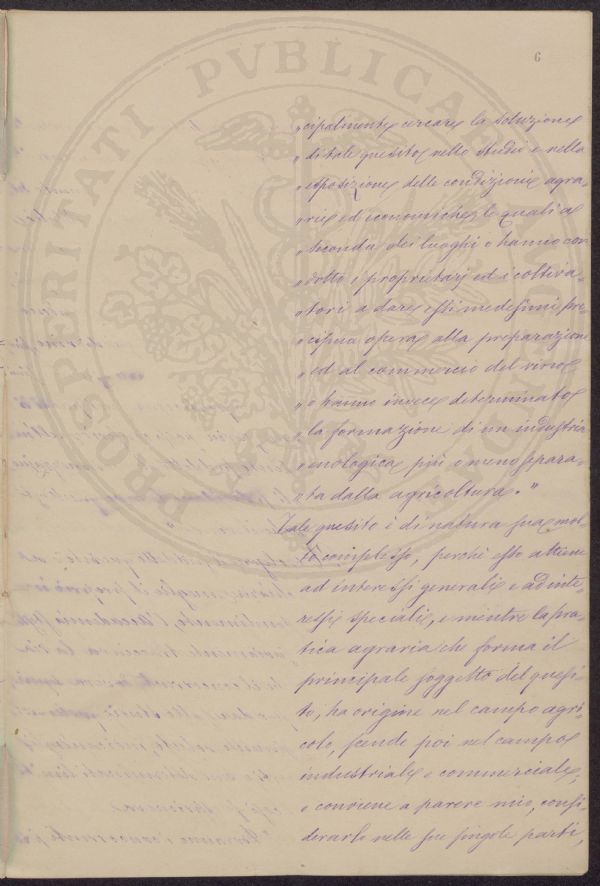 6
„cipalmente cercare la soluzione
„di tale quesito nello studio e nella
„esposizione delle condizioni agra-
„rie ed economiche, le quali a
„seconda dei luoghi o hanno con
„dotto i proprietarj ed i coltiva-
„tori a dare essi medesimi pre-
„cipua opera alla preparazione
„ed al commercio del vino,
„o hanno invece determinato
„la formazione di un industria
„enologica più o meno separa-
„ta dalla agricoltura."
Tale quesito è di natura sua mol-
to complesso, perché esso attiene
ad interessi generali e ad inte-
ressi speciali, e mentre la pra-
tica agraria che forma il
principale soggetto del quesi-
to, ha origine nel campo agri-
colo, scende poi nel campo
industriale e commerciale,
e conviene a parere mio, consi-
derarlo nelle sue singole parti,
PROSPERITATI PVBLICAE